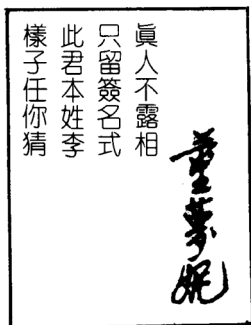 眞人不露相
只留簽名式
此君本姓李
樣子任你猜
董夢妮